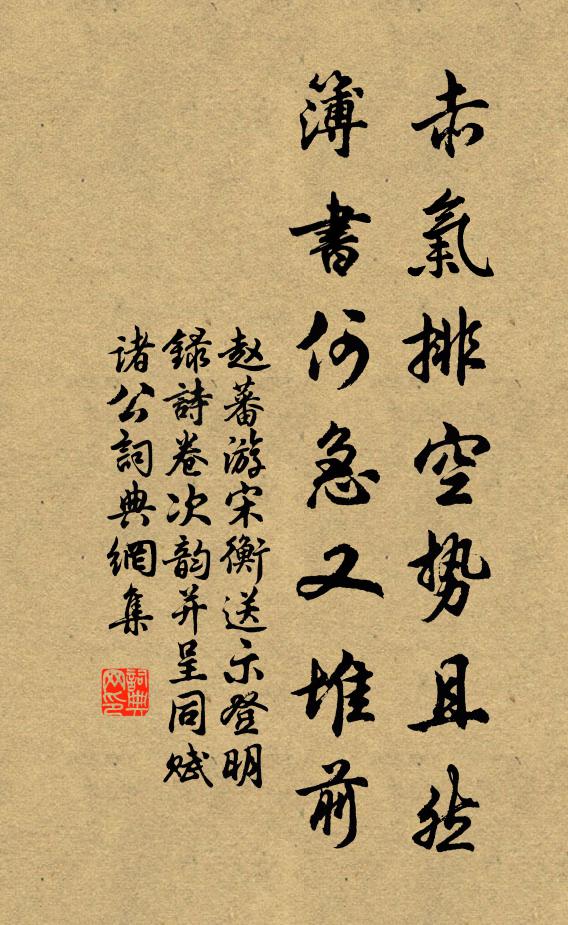 赤氣排空势且然
簿書何急又堆前
赵蕃游宋衡送示登明
録詩卷次韵并呈同赋
诸公詞典網集
詞典网印